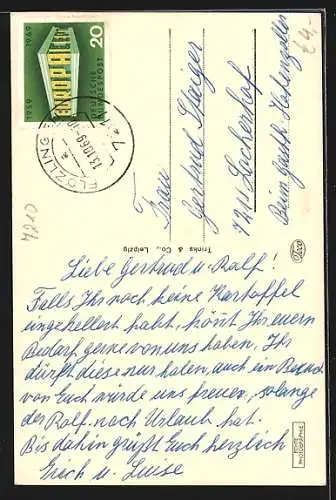 1959 1969
EUROPA CEPT
DEUTSCHE BUNDESPOST
20
FLÖZLINGEN
13.10.69-10
7211
24,-
Frau
Gertrud Staiger
7211 Lackerhof
Beim Gasth. Hohenzollern
7210
Trinks & Co., Leipzig
Trico
ECHTE PHOTOGRAPHIE
Liebe Gertrud u. Ralf!
Falls Ihr noch keine Kartoffel
eingekellert habt, könnt Ihr euern
Bedarf gerne von uns haben. Ihr
dürft diese nur holen, auch ein Besuch
von Euch würde uns freuen, solange
der Ralf noch Urlaub hat.
Bis dahin grüßt Euch herzlich
Erich u. Luise